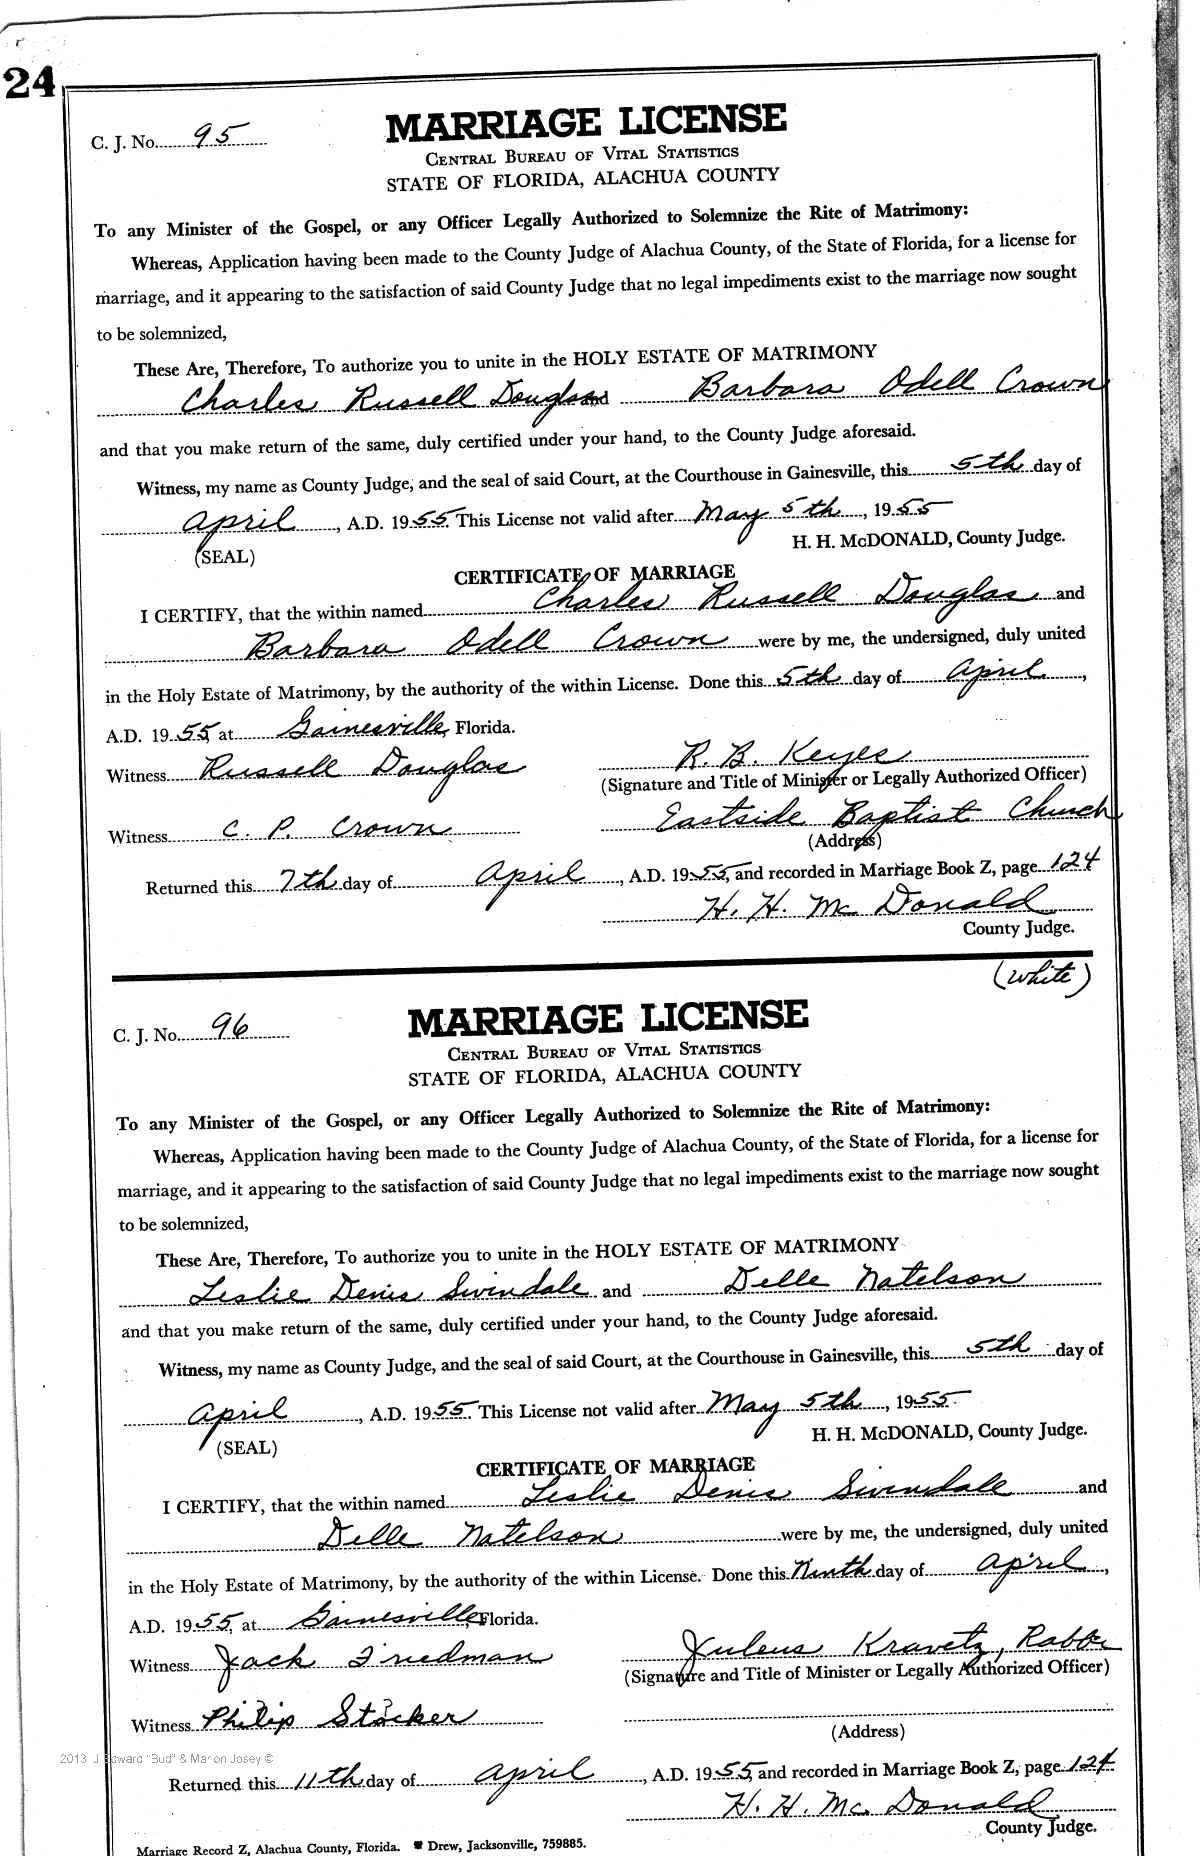 24
C. J. No. 95
MARRIAGE LICENSE
CENTRAL BUREAU OF VITAL STATISTICS
STATE OF FLORIDA, ALACHUA COUNTY
To any Minister of the Gospel, or any Officer Legally Authorized to Solemnize the Rite of Matrimony:
Whereas, Application having been made to the County Judge of Alachua County, of the State of Florida, for a license for
marriage, and it appearing to the satisfaction of said County Judge that no legal impediments exist to the marriage now sought
to be solemnized,
These Are, Therefore, To authorize you to unite in the HOLY ESTATE OF MATRIMONY
Charles Russell Douglas and Barbara Odell Crown
and that you make return of the same, duly certified under your hand, to the County Judge aforesaid.
Witness, my name as County Judge, and the seal of said Court, at the Courthouse in Gainesville, this 5th day of
April, A.D. 1955. This License not valid after May 5th, 1955
(SEAL) H. H. McDONALD, County Judge.
CERTIFICATE OF MARRIAGE
I CERTIFY, that the within named Charles Russell Douglas and
Barbara Odell Crown were by me, the undersigned, duly united
in the Holy Estate of Matrimony, by the authority of the within License. Done this 5th day of April,
A.D. 1955, at Gainesville, Florida.
Witness Russell Douglas R. B. Keyes
(Signature and Title of Minister or Legally Authorized Officer)
Witness C. P. Crown Eastside Baptist Church
(Address)
Returned this 7th day of April, A.D. 1955, and recorded in Marriage Book Z, page 124
H. H. McDonald
County Judge.
(white)
C. J. No. 96
MARRIAGE LICENSE
CENTRAL BUREAU OF VITAL STATISTICS
STATE OF FLORIDA, ALACHUA COUNTY
To any Minister of the Gospel, or any Officer Legally Authorized to Solemnize the Rite of Matrimony:
Whereas, Application having been made to the County Judge of Alachua County, of the State of Florida, for a license for
marriage, and it appearing to the satisfaction of said County Judge that no legal impediments exist to the marriage now sought
to be solemnized,
These Are, Therefore, To authorize you to unite in the HOLY ESTATE OF MATRIMONY
Leslie Denis Swindale and Delle Natelson
and that you make return of the same, duly certified under your hand, to the County Judge aforesaid.
Witness, my name as County Judge, and the seal of said Court, at the Courthouse in Gainesville, this 5th day of
April, A.D. 1955. This License not valid after May 5th, 1955
(SEAL) H. H. McDONALD, County Judge.
CERTIFICATE OF MARRIAGE
I CERTIFY, that the within named Leslie Denis Swindale and
Delle Natelson were by me, the undersigned, duly united
in the Holy Estate of Matrimony, by the authority of the within License. Done this Ninth day of April,
A.D. 1955, at Gainesville, Florida.
Witness Jack Friedman Juleus Kravetz, Rabbi
(Signature and Title of Minister or Legally Authorized Officer)
Witness Philip Stocker
(Address)
2013 J Edward "Bud" & Marion Josey ©
Returned this 11th day of April, A.D. 1955, and recorded in Marriage Book Z, page 124
H. H. McDonald
County Judge.
Marriage Record Z, Alachua County, Florida. Drew, Jacksonville, 759885.